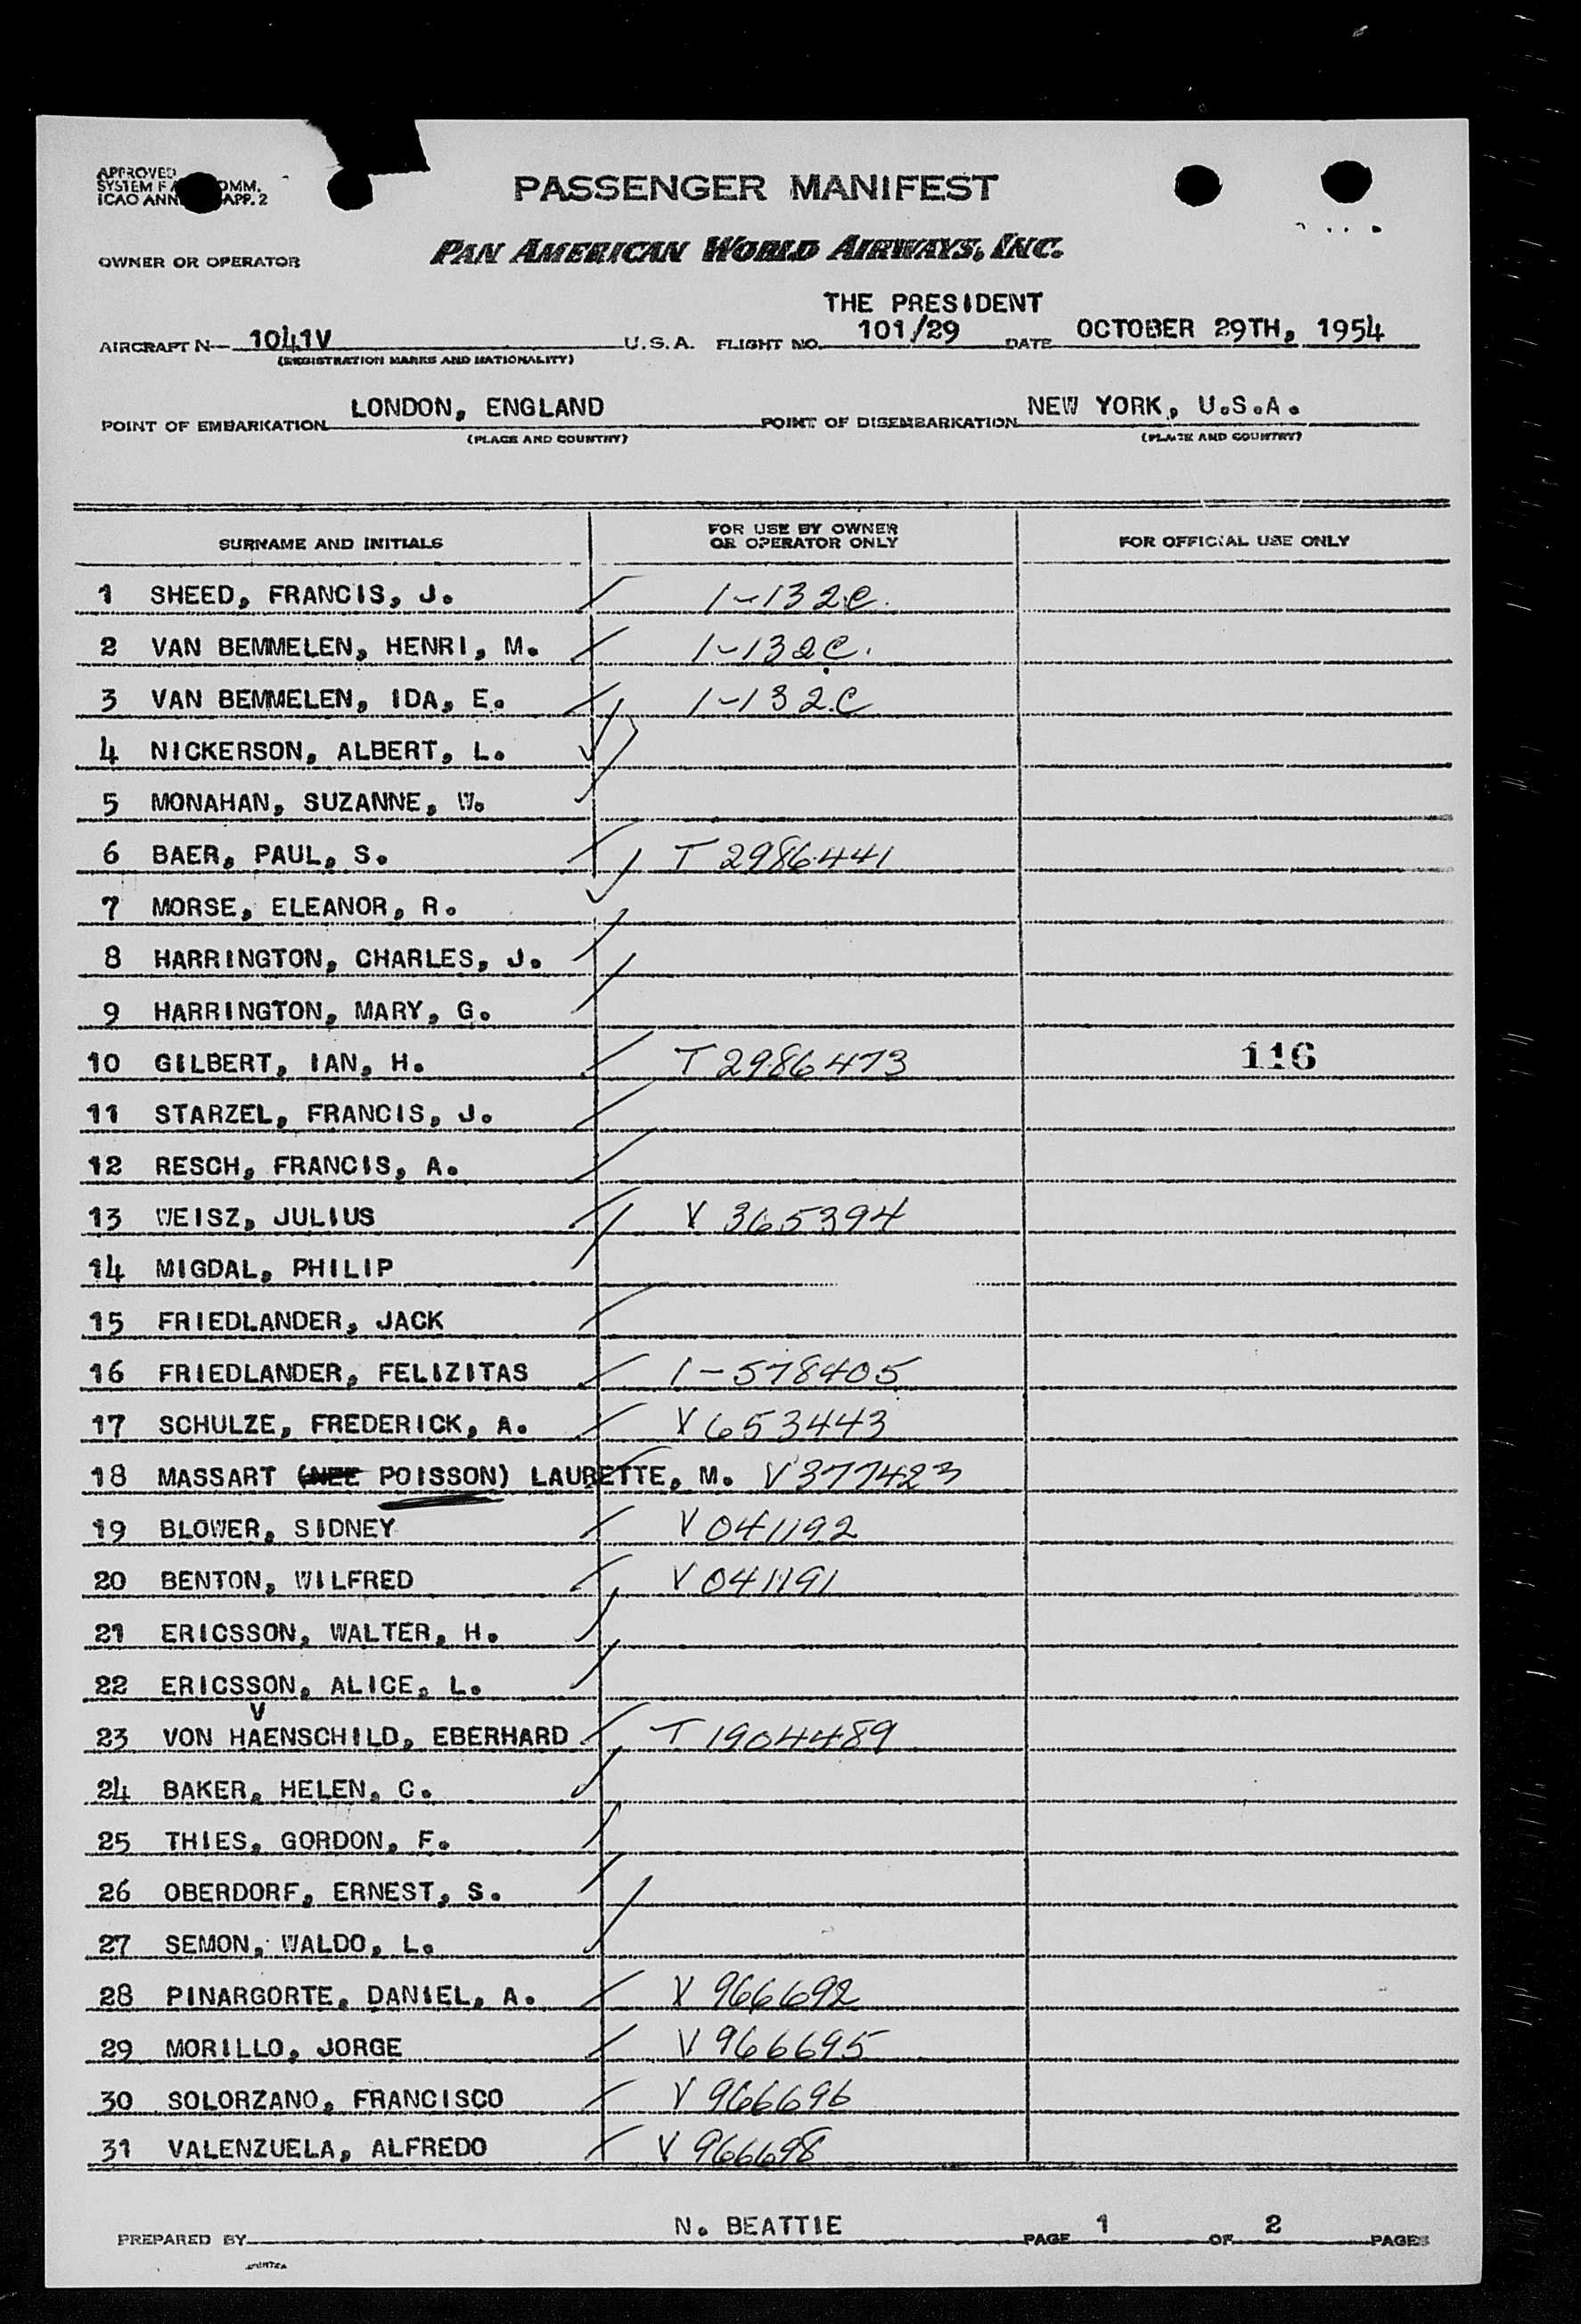 APPROVED
SYSTEM F A OMM.
ICAO ANN APP. 2
PASSENGER MANIFEST
OWNER OR OPERATOR PAN AMERICAN WORLD AIRWAYS, INC.
THE PRESIDENT
AIRCRAFT N 1041V U.S.A. FLIGHT NO. 101/29 DATE OCTOBER 29TH, 1954
(REGISTRATION MARKS AND NATIONALITY)
POINT OF EMBARKATION LONDON, ENGLAND POINT OF DISEMBARKATION NEW YORK, U.S.A.
(PLACE AND COUNTRY) (PLACE AND COUNTRY)
SURNAME AND INITIALS FOR USE BY OWNER OR OPERATOR ONLY FOR OFFICIAL USE ONLY
1 SHEED, FRANCIS, J. 1-132C.
2 VAN BEMMELEN, HENRI, M. 1-132C.
3 VAN BEMMELEN, IDA, E. 1-132C
4 NICKERSON, ALBERT, L.
5 MONAHAN, SUZANNE, W.
6 BAER, PAUL, S. T 2986441
7 MORSE, ELEANOR, R.
8 HARRINGTON, CHARLES, J.
9 HARRINGTON, MARY, G.
10 GILBERT, IAN, H. T 2986473 116
11 STARZEL, FRANCIS, J.
12 RESCH, FRANCIS, A.
13 WEISZ, JULIUS V 365394
14 MIGDAL, PHILIP
15 FRIEDLANDER, JACK
16 FRIEDLANDER, FELIZITAS 1-578405
17 SCHULZE, FREDERICK, A. V 653443
18 MASSART (NEE POISSON) LAURETTE, M. V 377423
19 BLOWER, SIDNEY V 041192
20 BENTON, WILFRED V 041191
21 ERICSSON, WALTER, H.
22 ERICSSON, ALICE, L.
V
23 VON HAENSCHILD, EBERHARD T 1904489
24 BAKER, HELEN, C.
25 THIES, GORDON, F.
26 OBERDORF, ERNEST, S.
27 SEMON, WALDO, L.
28 PINARGORTE, DANIEL, A. V 966692
29 MORILLO, JORGE V 966695
30 SOLORZANO, FRANCISCO V 966696
31 VALENZUELA, ALFREDO V 966698
PREPARED BY N. BEATTIE PAGE 1 OF 2 PAGES